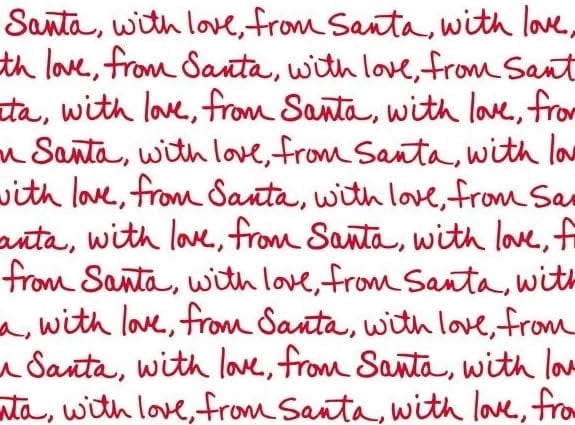 Santa, with love, from Santa, with love,
th love, from Santa, with love, from Sant
ta, with love, from Santa, with love, fro
m Santa, with love, from Santa, with lo
with love, from Santa, with love, from Sa
anta, with love, from Santa, with love, f
from Santa, with love, from Santa, with
a, with love, from Santa, with love, from
m Santa, with love, from Santa, with lov
nta, with love, from Santa, with love, fro